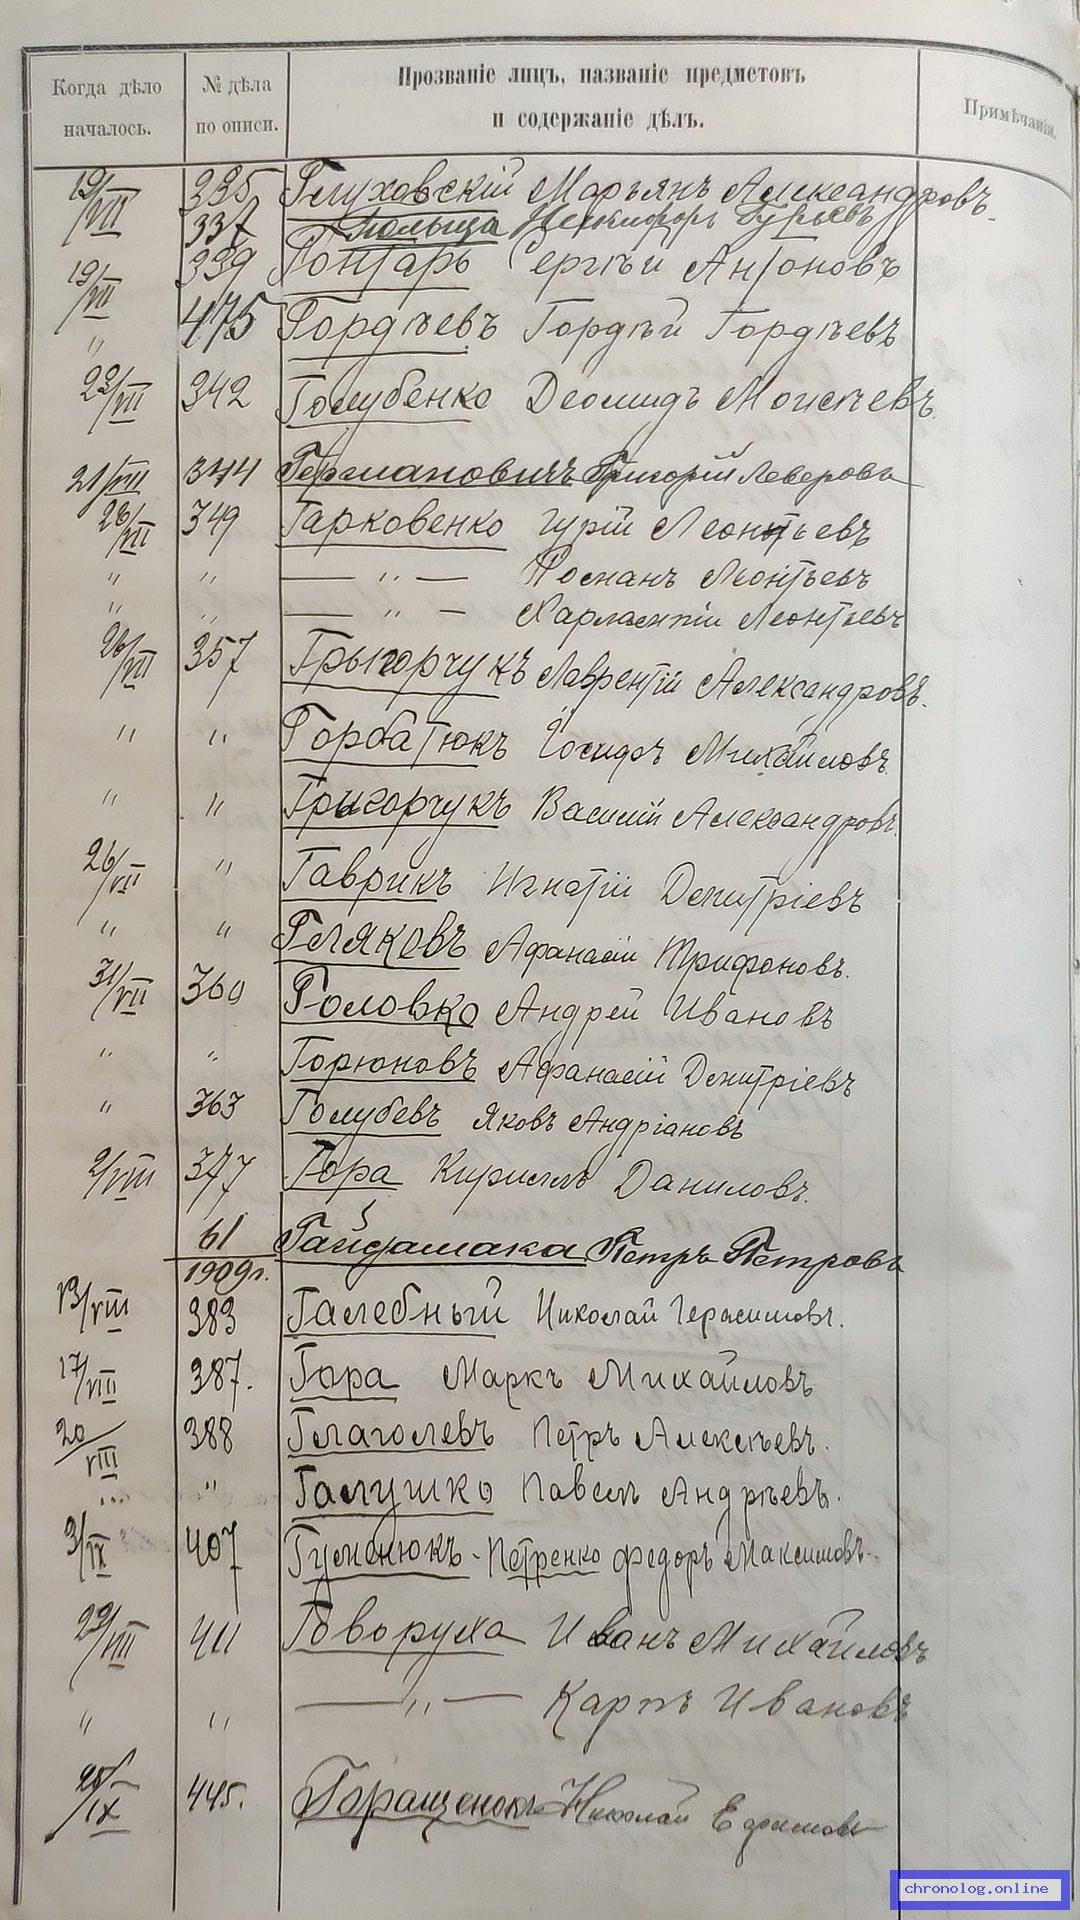 Когда дѣло началось.
№ дѣла по описи.
Прозваніе лицъ, названіе предметовъ и содержаніе дѣлъ.
Примѣчанія.
19/VII 335 Глуховскій Марьянъ Александровъ.
337 Гольца Никифоръ Гурьевъ
19/VII 339 Гонтарь Сергѣй Антоновъ
" 475 Гордѣевъ Гордѣй Гордѣевъ
22/VII 342 Голубенко Деомидъ Моисѣевъ.
21/VIII 344 Германовичъ Григорій
26/VII 349 Гарковенко Гурій Леонтьевъ
" " — " — Романъ Леонтьевъ
" " — " — Харлампій Леонтьевъ
26/VII 357 Грыгорчукъ Лаврентій Александровъ.
" " Горбатюкъ Іосифъ Михайловъ.
" " Григорчукъ Василій Александровъ.
26/VII " Гаврикъ Игнатій Дмитріевъ
" " Гляковъ Афанасій Трифоновъ.
31/VII 360 Головко Андрей Ивановъ
" " Горюновъ Афанасій Дмитріевъ
" 363 Голубевъ Яковъ Андріановъ
2/VIII 377 Гора Кириллъ Даниловъ.
61 Гайдамака Петръ Петровъ
1909г.
13/VIII 383 Галебный Николай Герасимовъ.
17/VIII 387. Гора Маркъ Михайловъ
20/VIII 388 Глаголевъ Петръ Алексѣевъ.
" " Галушко Павелъ Андрѣевъ.
3/IX 407 Гуменюкъ-Петренко Федоръ Максимовъ.
29/VIII 411 Говоруха Иванъ Михайловъ
" " — " — Карпъ Ивановъ
25/IX 445. Горащенокъ Николай Ефимовъ
chronolog.online